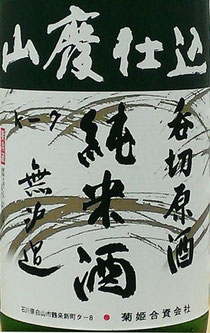 山廃仕込
呑切原酒
純米酒
無汐過
石川県白山市鶴来新町タ一8
菊姫合資会社